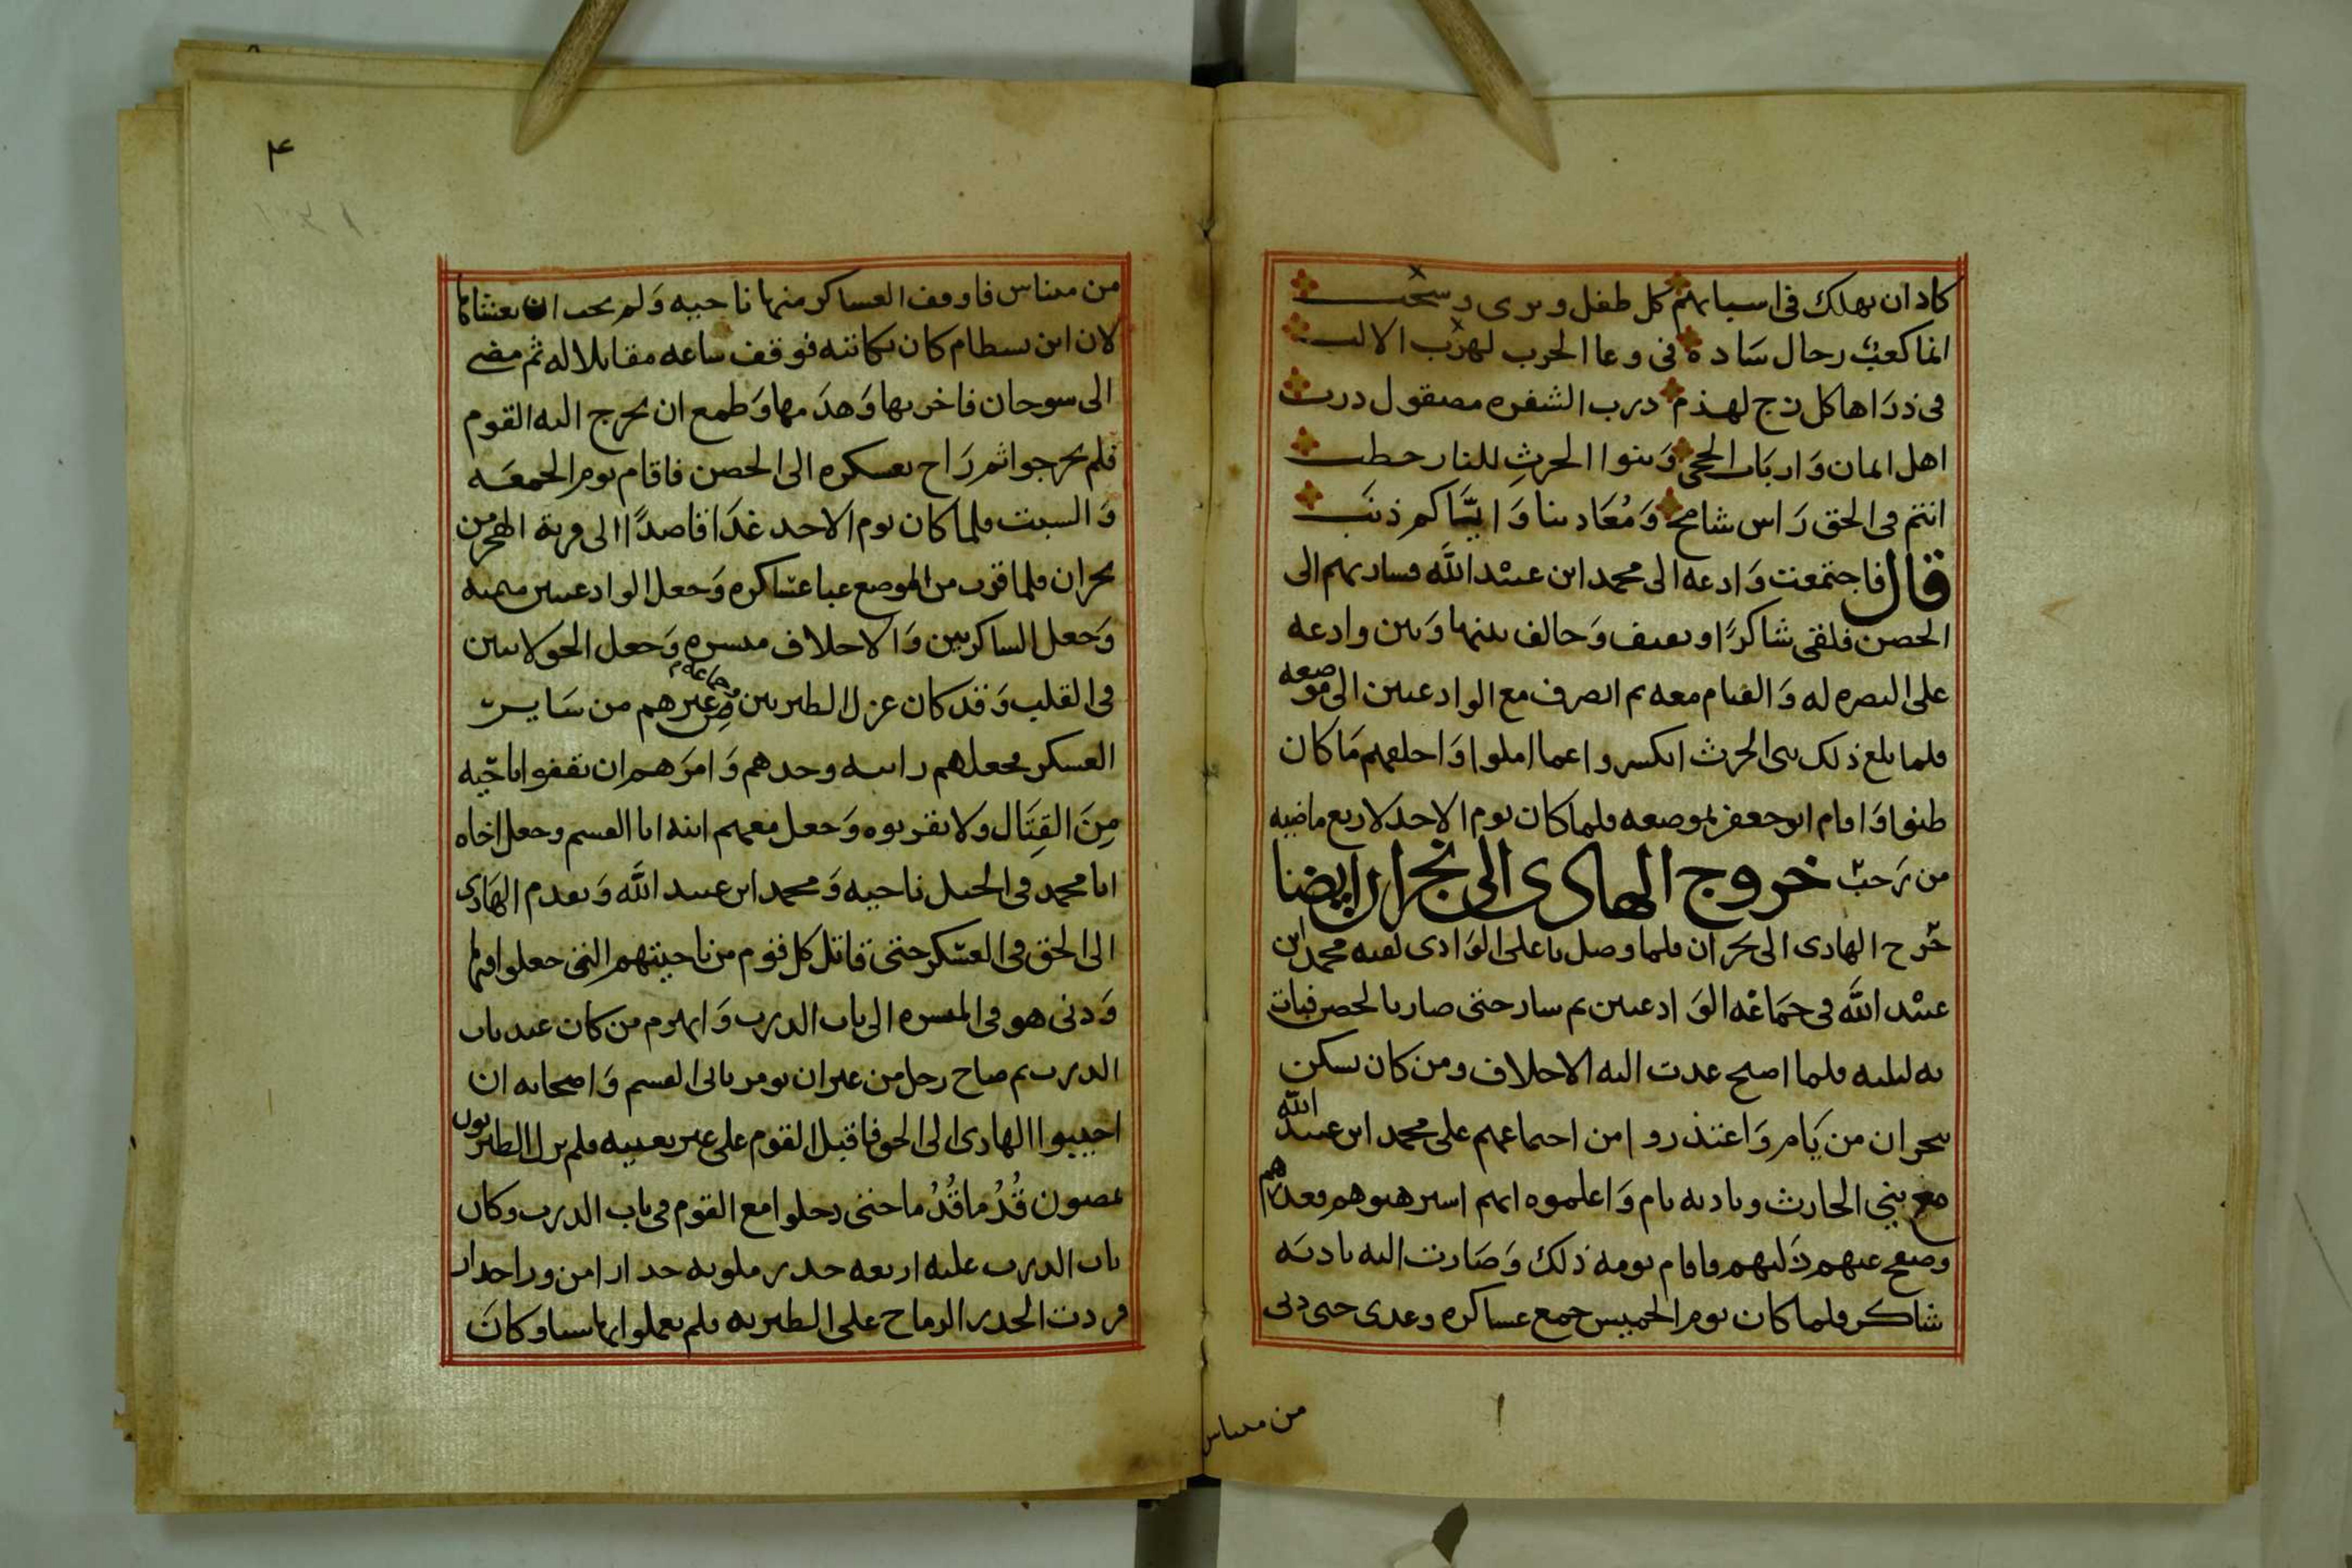 كاد ان يهلك في اسبابهم كل طفل ويرى
انما كعب رجال سادة في وعا الحرب الالب
في ذراها كل زج لهذم درب الشفره مصقول درب
اهل ايمان وارباب الحجى وبنوا الحرث للنار حطب
انتم في الحق راس شامخ ومعادينا واياكم ذنب
قال فاجتمعت وادعه الى محمد ابن عبيد الله فسار بهم الى
الحصن فلقى شاكرًا وثقيف وحالف بينها وبين وادعه
على النصره له والقيام معه ثم انصرف مع الوادعيين الى موضعه
فلما بلغ ذلك بنى الحرث انكسروا عما املوا واخلفهم ما كان
طنوا واقام ابو جعفر بموضعه فلما كان يوم الاحد لاربع ماضيه
من رجب خروج الهادى الى نجران ايضا
خرج الهادى الى نجران فلما وصل باعلى الوادى لقيه محمد ابن
عبيد الله في جماعه الوادعيين ثم سار حتى صار بالحصن فبات
به ليلته فلما اصبح غدت اليه الاحلاف ومن كان يسكن
نجران من يام واعتذروا من اجماعهم على محمد ابن عبيد الله
مع بني الحارث وباديه يام واعلموه انهم استرهبوهم فعذرهم
وصفح عنهم زليهم فاقام يومه ذلك وصارت اليه باديه
شاكر فلما كان يوم الخميس جمع عساكره وعدى حتى دنى
من ميناس
٤
من ميناس فاوقف العساكر منها ناحيه ولم يحب ان يغشاها
لان ابن بسطام كان يكاتبه فوقف ساعه مقابلا له ثم مضى
الى سوحان فاخربها وهدمها وطمع ان يخرج اليه القوم
فلم يخرجوا ثم راح بعسكره الى الحصن فاقام يوم الجمعه
والسبت فلما كان يوم الاحد غدا قاصدًا الى قرية الهجر من
نجران فلما قرب من الموضع عبا عساكره وجعل الوادعيين ميمنه
وجعل الشاكريين والاحلاف ميسره وجعل الخولانيين
في القلب وقد كان عزل الطبريين وجماعه من غيرهم من ساير
العسكر فجعلهم رابيه وحدهم وامرهم ان يقفوا ناحيه
من القتال ولا يقربوه وجعل معهم ابنه ابا القسم وجعل اخاه
ابا محمد في الخيل ناحيه ومحمد ابن عبيد الله وتقدم الهادى
الى الحق في العسكر حتى قاتل كل قوم من ناحيتهم التى جعلوا فيها
ودنى هو في الميسره الى باب الدرب وانهزم من كان عند باب
الدرب ثم صاح رجل من يومر بابى القسم واصحابه ان
اجيبوا الهادى الى الحق فاقبل القوم على غير تعبيه فلم يزل الطبريون
يمضون قُدُما قُدُما حتى دخلوا مع القوم في باب الدرب وكان
باب الدرب عليه اربعه جدر ملويه جدارا من ورا جدار
فردت الجدر الرماح على الطبريه فلم يعملوا بها شيا وكان